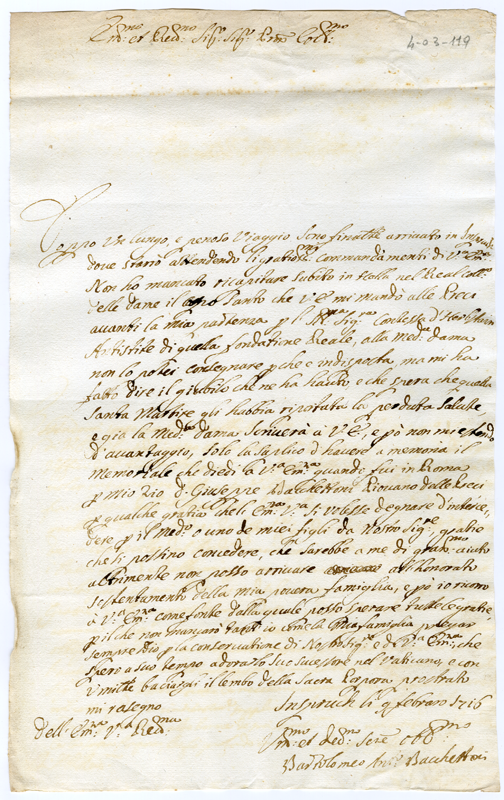 4-03-119
Em:mo et Red:mo Sig: Sig: Pne Col:mo
Doppo Un lungo, e penoso Viaggio sono finalm:te arrivato in Inspruch
dove starò attendendo li gratios:mi Commandamenti di V: Em:za
Non hò mancato ricapitare subito in Halla nel Real coll:o
delle dame il Santo che V E mi mandò alle Recci
avanti la mia partenza p l Ill:ma Sig:ra Contessa d'
Antistite di quella fondatione Reale, alla Med:a dama
non lo potei consegnare p che è indisposta, ma mi hà
fatto dire il giubilo che ne hà hauto e che spera che quella
Santa Martire gli habbia riportata la perduta Salute
e già la Med:ma dama scriverà à V E: e pò non mi
d'avantaggio, solo la suplico d'havere à memoria il
Memoriale che diedi à V:ra Em:za quando fui in Roma
p mio zio D: Giuseppe Bacchettoni Piovano delle Recci
p qualche gratia che l: Em:za V:ra si volesse degnare d'interce,
dere p il Med:o o uno de miei figli da Nostro Sig:re gratie
che si possino concedere, che sarebbe a me di gran:mo aiuto
altrimente non posso arrivare all honorato
sostentamento della mia povera famiglia, e pò io ricorro
à V:ra Em:za come fonte dalla quale posso sperare tutte le gratie
p il che non mancarò tanto io come la mia famiglia p
sempre Dio p la conservatione di Nostro Sig:re e di V:ra Em:za, che
spero a suo tempo adorarlo suo sucessore nel Vaticano, e con
mille baciargli il lembo della Sacra Porpora prostrato
mi rasegno
Inspruch li 9 febraro 1716
Dell: Em:za V:ra Red:ma
Um:mo et Dev:mo Serv:re Obb:mo
Bartolomeo Ant:o Bacchettoni